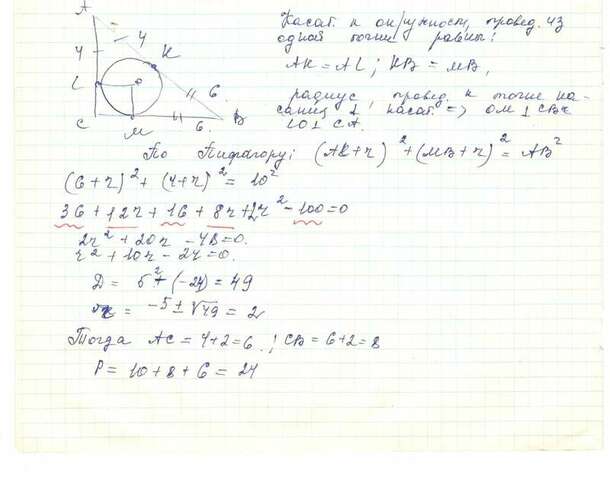 A
4
4
K
L
O
6.
C
M
6.
B
Касат. к окружности, провед. из
одной точки равны:
AK = AL ; KB = MB,
радиус, провед. к точке ка-
сания ⊥ касат. => OM ⊥ CB и
LO ⊥ CA.
По Пифагору: (AK+r)² + (MB+r)² = AB²
(6+r)² + (4+r)² = 10²
36 + 12r + 16 + 8r + 2r² - 100 = 0
2r² + 20r - 48 = 0.
r² + 10r - 24 = 0.
D = 5² + (-24) = 49
r = -5 ± √49 = 2
Тогда AC = 4+2=6. ; CB = 6+2=8
P = 10 + 8 + 6 = 24